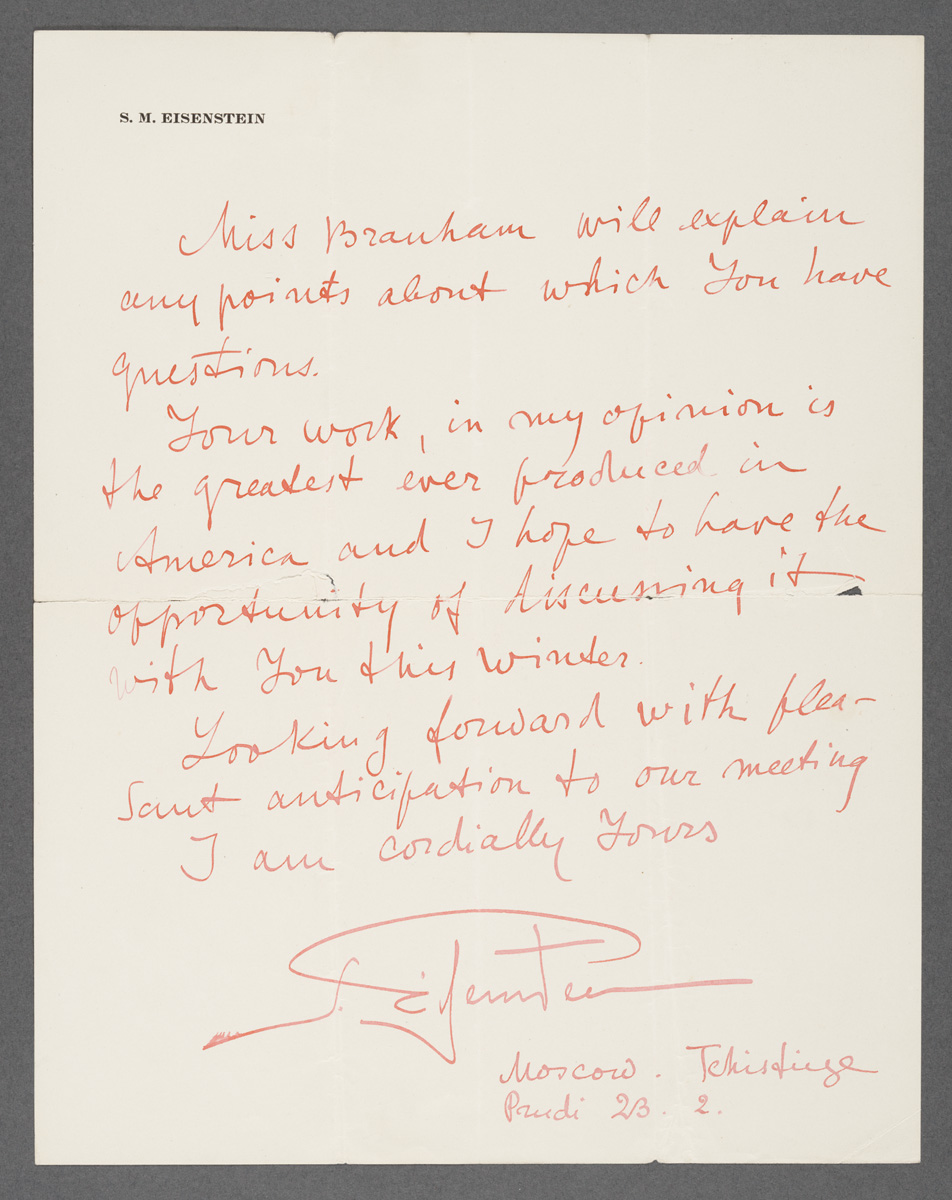 S. M. EISENSTEIN
Miss Branham will explain
any points about which You have
questions.
Your work, in my opinion is
the greatest ever produced in
America and I hope to have the
opportunity of discussing it
with You this winter.
Looking forward with plea-
sant anticipation to our meeting
I am cordially Yours
S. Eisenstein
Moscow. Tchistiye
Prudi 23. 2.